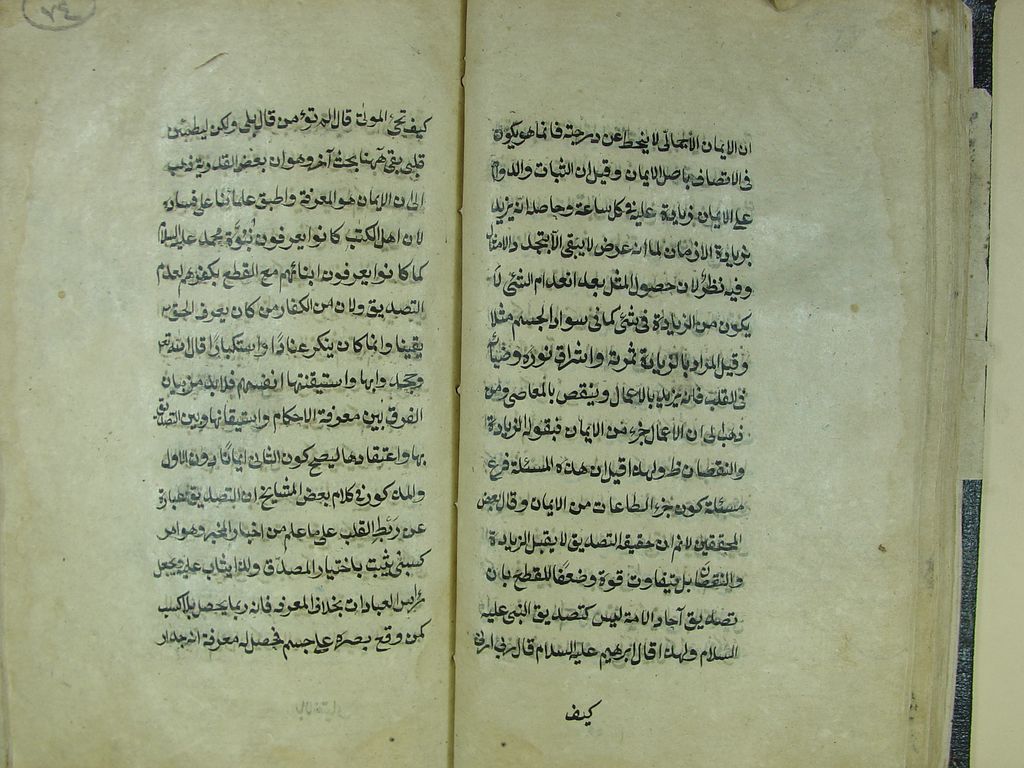 ان الايمان الاجمالى لا ينحط عن درجته فانما هو يكون
فى الاتصاف باصل الايمان وقيل ان الثبات والدوام
على الايمان زيادة عليه فى كل ساعة وحاصله انه يزيد
بزيادة الازمان لما انه عرض لا يبقى الا بتجدد الامثال
وفيه نظر لان حصول المثل بعد انعدام الشئ لا
يكون من الزيادة فى شئ كما فى سواد الجسم مثلا
وقيل المراد بالزيادة ثمرته واشراق نوره وضيائه
فى القلب فانه يزيد بالاعمال وينقص بالمعاصى ومن
ذهب الى ان الاعمال جزء من الايمان فبقوله الزيادة
والنقصان ظ ولهذا قيل ان هذه المسئلة فرع
مسئلة كون جزء الطاعات من الايمان وقال بعض
المحققين لانم ان حقيقة التصديق لا يقبل الزيادة
والنقصان بل يتفاوت قوة وضعفا للقطع بان
تصديق آحاد الامة ليس كتصديق النبى عليه
السلام ولهذا قال ابرهيم عليه السلام قال رب ارنى
كيف
٧٤
كيف تحى الموتى قال الم تؤمن قال بلى ولكن ليطمئن
قلبى بقى ههنا بحث آخر وهو ان بعض القدرية ذهب
الى ان الايمان هو المعرفة واطبق علمائنا على فساده
لان اهل الكتب كانوا يعرفون نبوة محمد عليه السلام
كما كانوا يعرفون ابنائهم مع القطع بكفرهم لعدم
التصديق ولان من الكفار من كان يعرف الحق
يقينا وانما كان ينكر عنادا واستكبارا قال الله تع
وجحدوا بها واستيقنتها انفسهم فلابد من بيان
الفرق بين معرفة الاحكام واستيقانها وبين التصديق
بها واعتقادها ليصح كون الثانى ايمانا دون الاول
والمذكور فى كلام بعض المشايخ ان التصديق عبارة
عن ربط القلب على ما علم من اخبار المخبر وهو امر
كسبى يثبت باختيار المصدق ولذا يثاب عليه ويجعل
رأس العبادات بخلاف المعرفة فانه ربما يحصل بلا كسب
كمن وقع بصره على جسم فحصل له معرفة انه جدار